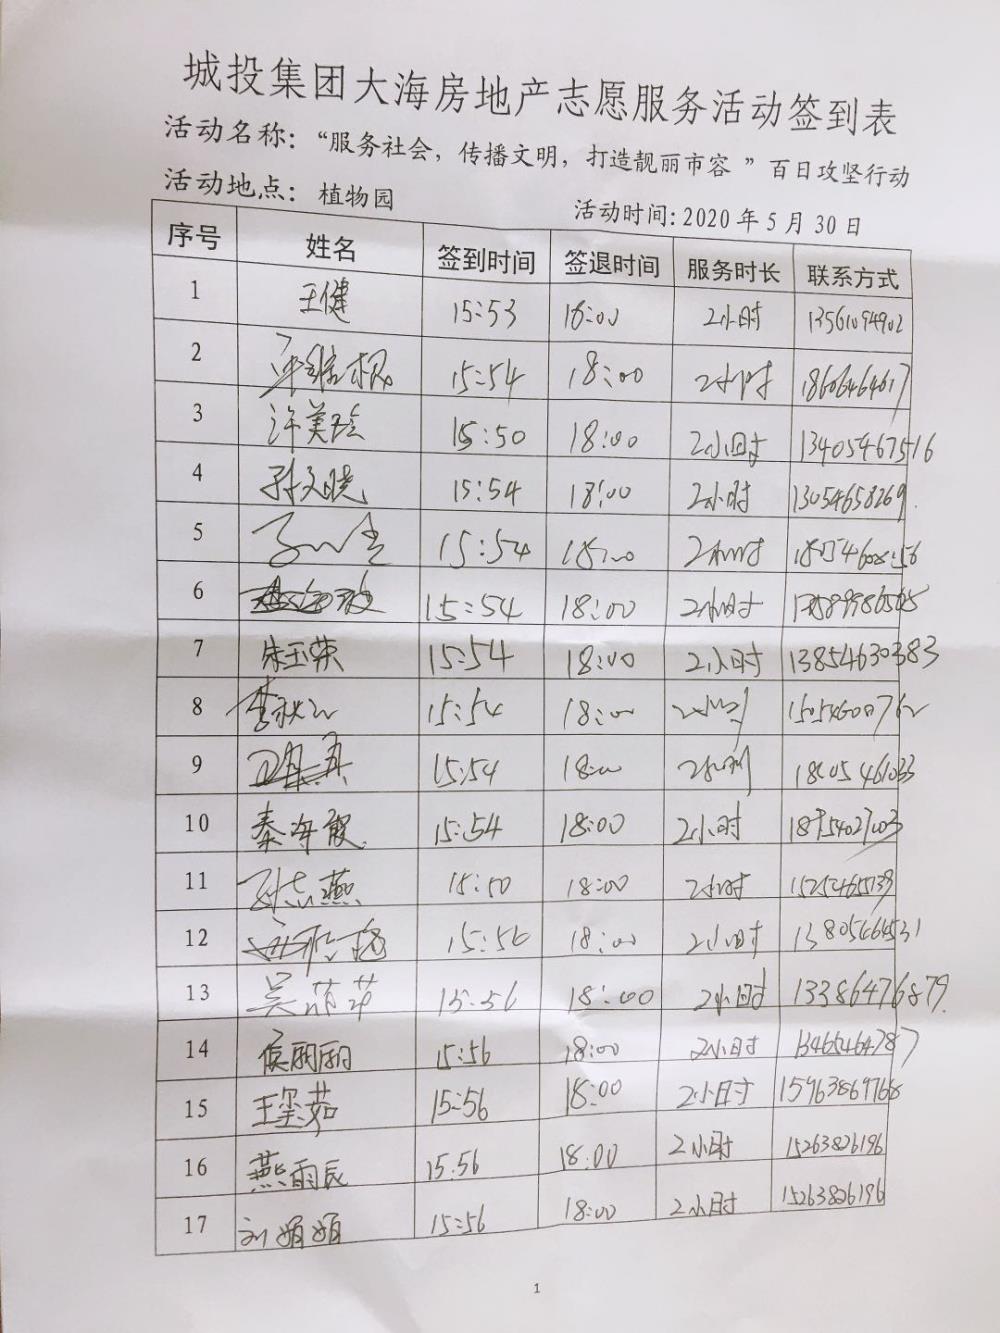 城投集团大海房地产志愿服务活动签到表
活动名称：“服务社会，传播文明，打造靓丽市容 ”百日攻坚行动
活动地点： 植物园 活动时间：2020 年 5 月 30 日
序号 姓名 签到时间 签退时间 服务时长 联系方式
1 王健 15:53 18:00 2小时 13561094902
2 15:54 18:00 2小时 18606464617
3 许美玲 15:50 18:00 2小时 13405467516
4 孙文晓 15:54 18:00 2小时 13054658269
5 15:54 18:00 2小时
6 15:54 18:00 2小时
7 朱玉荣 15:54 18:00 2小时 13854630383
8 15:54 18:00 2小时
9 15:54 18:00 2小时
10 秦海霞 15:54 18:00 2小时
11 孙志燕 15:50 18:00 2小时
12 15:56 18:00 2小时
13 吴萌萌 15:56 18:00 2小时 13386476879
14 侯丽丽 15:56 18:00 2小时 13465464787
15 王玺茹 15:56 18:00 2小时
16 燕雨辰 15:56 18:00 2小时 15263826196
17 刘娟娟 15:56 18:00 2小时 15263826196
1